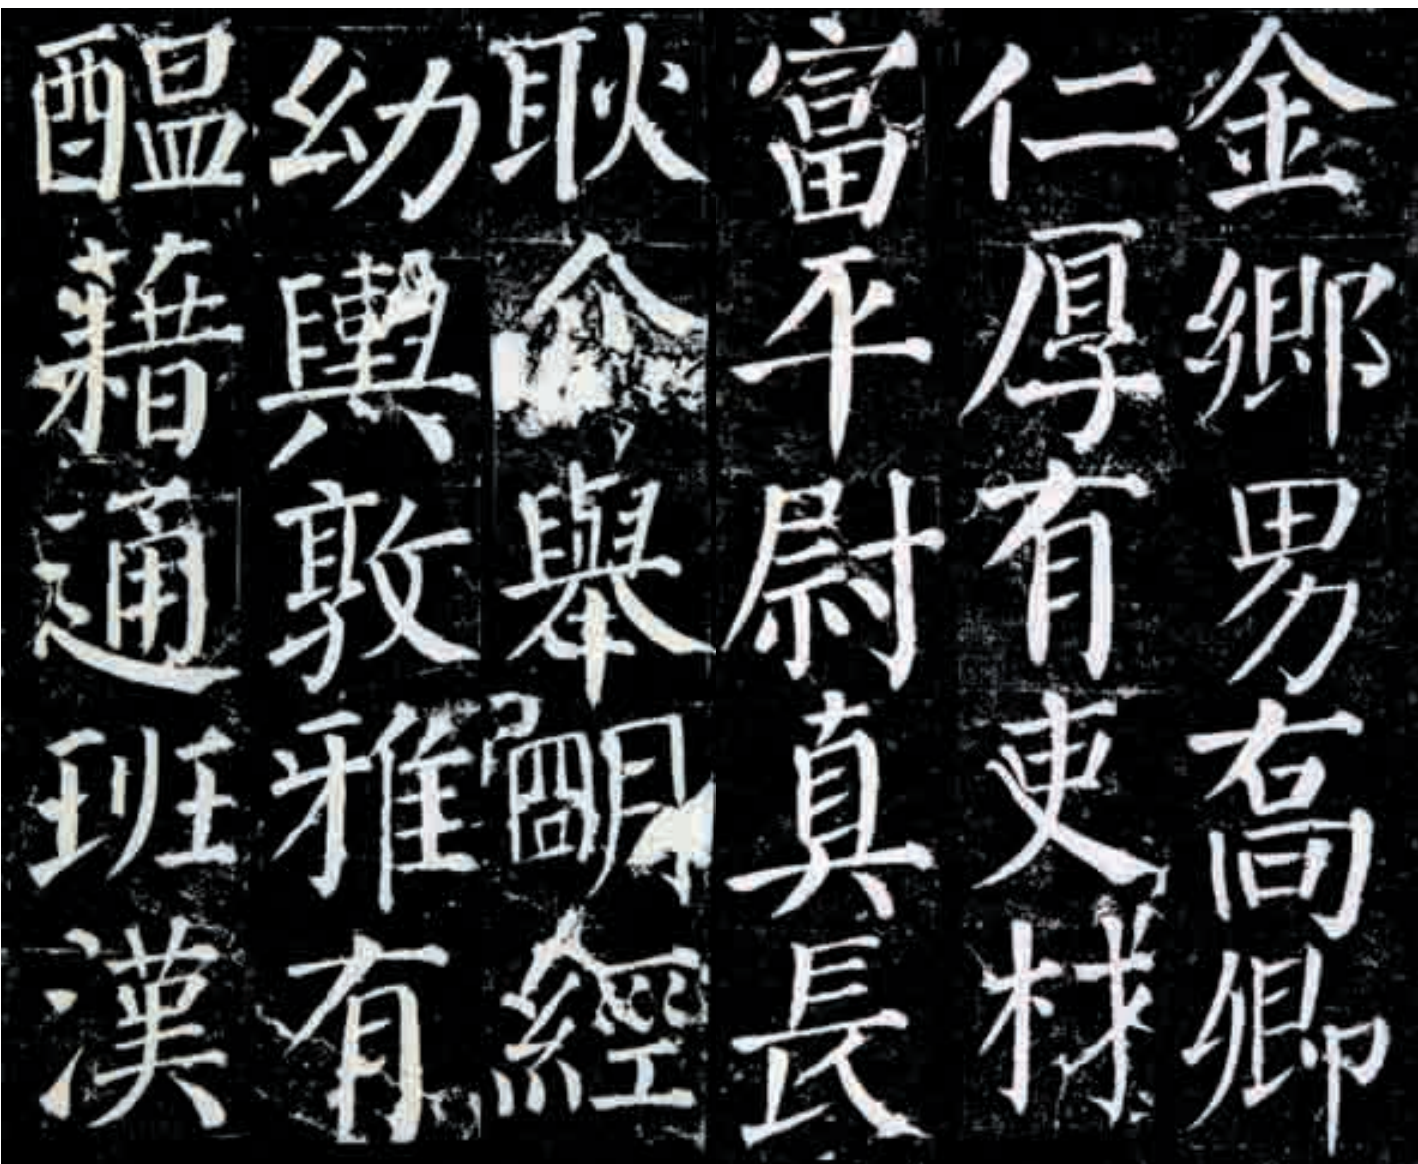 金鄉男喬卿
仁厚有吏材
富平尉真長
耿介舉明經
幼輿敦雅有
醞藉通班漢